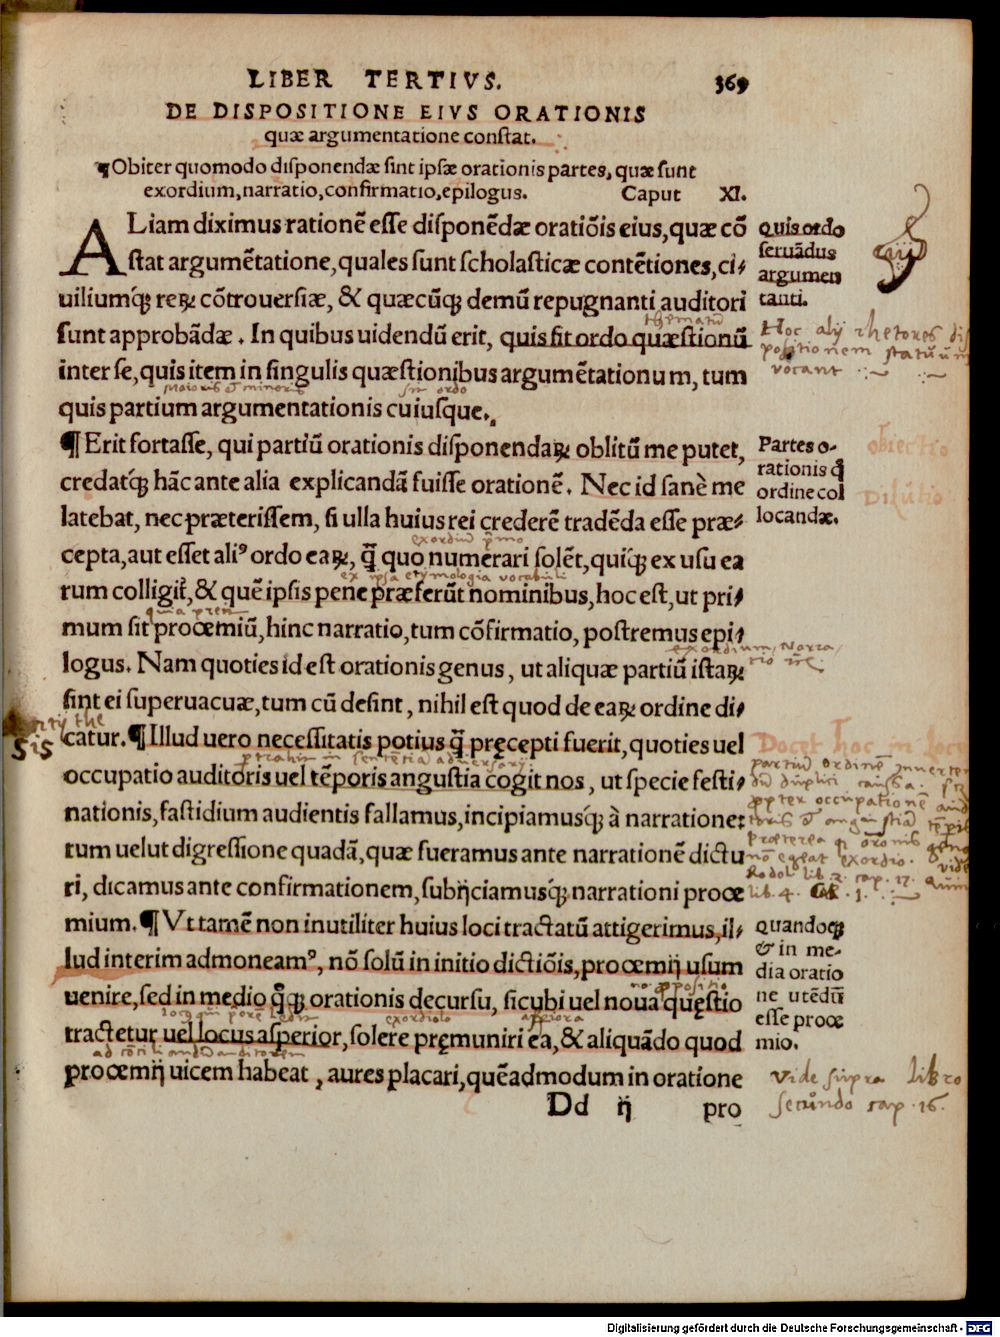 LIBER TERTIVS. 369
DE DISPOSITIONE EIVS ORATIONIS
quæ argumentatione constat.
¶Obiter quomodo disponendæ sint ipsæ orationis partes, quæ sunt
exordium, narratio, confirmatio, epilogus. Caput XI.
ALiam diximus rationē esse disponēdæ oratiōis eius, quæ cō
stat argumētatione, quales sunt scholasticæ contētiones, ci/
uiliumq́ꝫ reꝝ cōtrouersiæ, & quæcūqꝫ demū repugnanti auditori
thematū
sunt approbādæ. In quibus uidendū erit, quis sit ordo quæstionū
inter se, quis item in singulis quæstionibus argumētationum, tum
maioris & minoris sit ordo
quis partium argumentationis cuiusque.
quis ordo
seruādus
argumen
tanti.
Hoc alij rhetores dis
positionem statuum
vocant
¶ Erit fortasse, qui partiū orationis disponendaꝝ oblitū me putet,
credatq́ꝫ hāc ante alia explicandā fuisse orationē. Nec id sanè me
latebat, nec præterissem, si ulla huius rei crederē tradēda esse præ/
cepta, aut esset aliꝰ ordo eaꝝ, q̄̃ quo numerari solēt, quiq́ꝫ ex usu ea
exordiū primo
ex ipsa etymologia vocabuli
rum colligit̃, & quē ipsis pene præferūt nominibus, hoc est, ut pri/
mum sit prooemiū, hinc narratio, tum cōfirmatio, postremus epi/
logus. Nam quoties id est orationis genus, ut aliquæ partiū istaꝝ
sint ei superuacuæ, tum cū desint, nihil est quod de eaꝝ ordine di/
catur. ¶ Illud uero necessitatis potius q̄̃ pręcepti fuerit, quoties uel
occupatio auditoris uel tēporis angustia cogit nos, ut specie festi/
nationis, fastidium audientis fallamus, incipiamusq́ꝫ à narratione:
tum uelut digressione quadā, quæ fueramus ante narrationē dictu
ri, dicamus ante confirmationem, subijciamusq́ꝫ narrationi prooe
mium. ¶ Vt tamē non inutiliter huius loci tractatū attigerimus, il/
lud interim admoneamꝰ, nō solū in initio dictiōis, prooemij usum
uenire, sed in medio q̄q́ꝫ orationis decursu, sicubi uel noua quęstio
exordiolo
tractetur uel locus asperior, solere pręmuniri ea, & aliquādo quod
prooemij uicem habeat, aures placari, quēadmodum in oratione
Dd ij pro
Partes o-
rationis q̄̃
ordine col
locandæ.
obiectio
Exordium, Narra/
tio
Docet hoc in loco
partiū ordinē inverten
propter occupationē aud
lib. 4. 1.
quandoqꝫ
& in me-
dia oratio
ne utēdū
esse prooe
mio.
vide supra libro
secundo cap. 16.